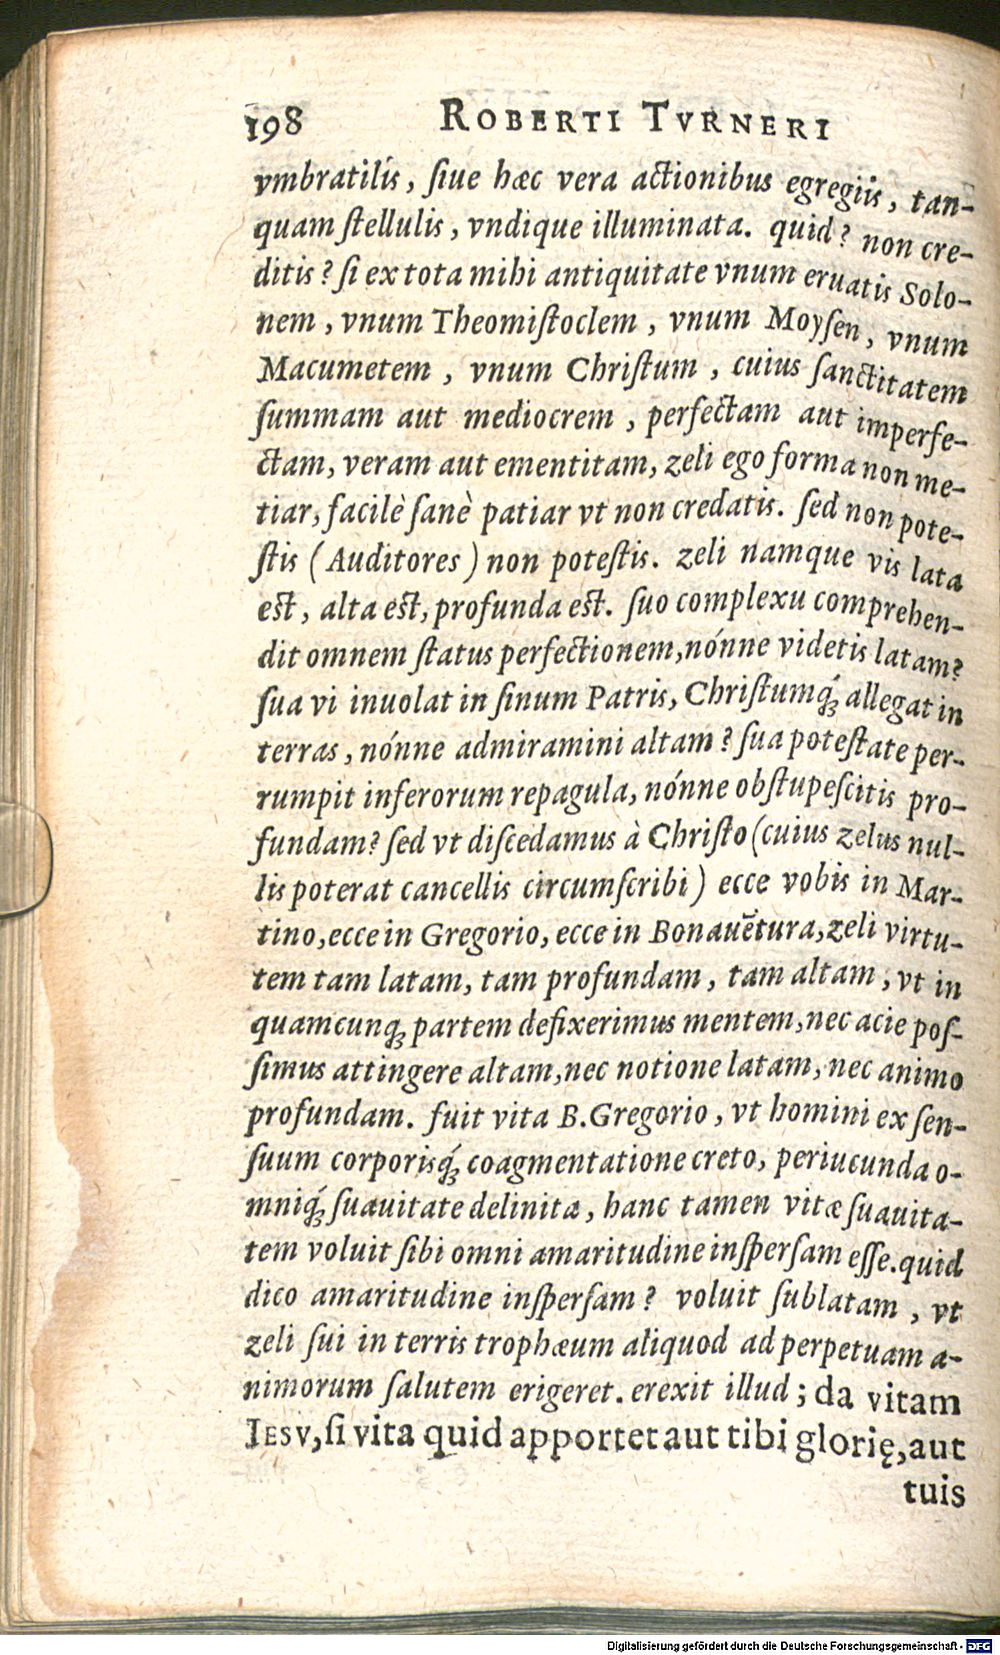 198 ROBERTI TVRNERI
vmbratilis, ſiue hæc vera actionibus egregijs, tan-
quam ſtellulis, vndique illuminata. quid? non cre-
ditis? ſi ex tota mihi antiquitate vnum eruatis Solo-
nem, vnum Theomiſtoclem, vnum Moyſen, vnum
Macumetem, vnum Chriſtum, cuius ſanctitatem
ſummam aut mediocrem, perfectam aut imperfe-
ctam, veram aut ementitam, zeli ego forma non me-
tiar, facilè ſanè patiar vt non credatis. ſed non pote-
ſtis (Auditores) non poteſtis. zeli namque vis lata
eſt, alta eſt, profunda eſt. ſuo complexu comprehen-
dit omnem ſtatus perfectionem, nónne videtis latam?
ſua vi inuolat in ſinum Patris, Chriſtumq́; allegat in
terras, nónne admiramini altam? ſua poteſtate per-
rumpit inferorum repagula, nónne obſtupeſcitis pro-
fundam? ſed vt diſcedamus à Chriſto (cuius zelus nul-
lis poterat cancellis circumſcribi) ecce vobis in Mar-
tino, ecce in Gregorio, ecce in Bonauẽtura, zeli virtu-
tem tam latam, tam profundam, tam altam, vt in
quamcunq; partem defixerimus mentem, nec acie poſ-
ſimus attingere altam, nec notione latam, nec animo
profundam. fuit vita B. Gregorio, vt homini ex ſen-
ſuum corporisq́; coagmentatione creto, periucunda o-
mniq́; ſuauitate delinita, hanc tamen vitæ ſuauita-
tem voluit ſibi omni amaritudine inſperſam eſſe. quid
dico amaritudine inſperſam? voluit ſublatam, vt
zeli ſui in terris trophæum aliquod ad perpetuam a-
nimorum ſalutem erigeret. erexit illud; da vitam
IESV, ſi vita quid apportet aut tibi glorię, aut
tuis
Digitalisierung gefördert durch die Deutsche Forschungsgemeinschaft - DFG